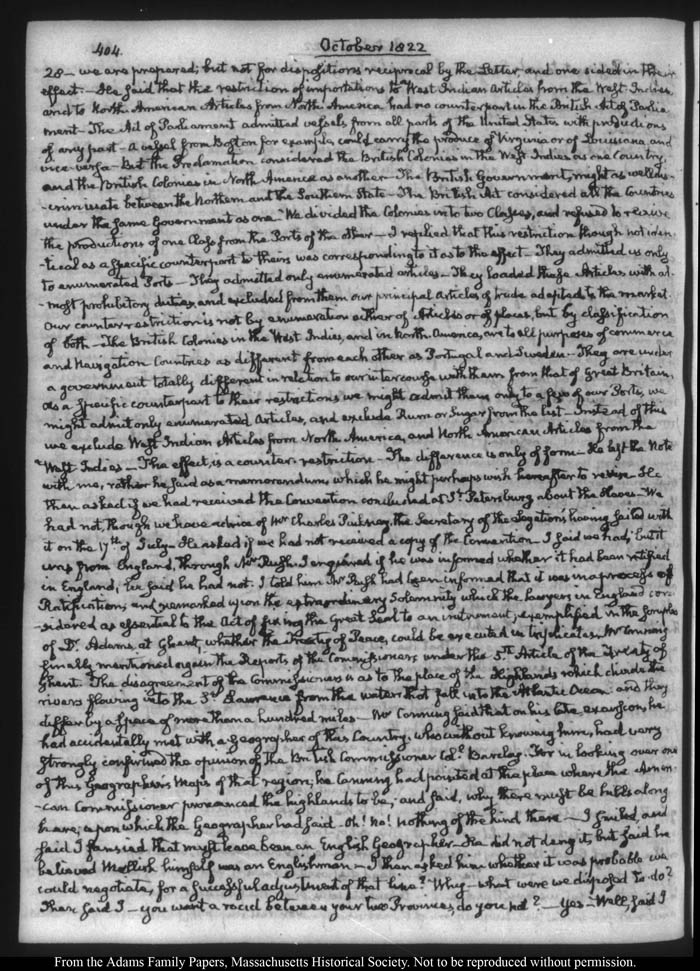 404.
October 1822
28 – we are prepared; but not for dispositions reciprocal by the Letter and one sided in their
effect – He said that the restriction of importations to West Indian Articles from the West Indies,
and to North American Articles from North America had no counterpart in the British Act of Parlia-
ment – The Act of Parliament admitted vessels from all parts of the United States with productions
of any part – A vessel from Boston for example could carry the produce of Virginia or of Louisiana, and
vice versa – But the Proclamation considered the British Colonies in the West Indies as one Country,
and the British Colonies in North America as another – The British Government, might as well dis-
-criminate between the Northern and the Southern State – The British Act considered all the Countries
under the same Government as one – We divided the Colonies into two Classes, and refused to receive
the productions of one Class from the Ports of the other – I replied that this restriction though not iden-
-tical as a specific counterpart to theirs was corresponding to it as to the effect – They admitted us only
to enumerated Ports – They admitted only enumerated articles – They loaded these Articles with al-
-most prohibitory duties, and excluded from them our principal articles of trade adapted to the market.
Our counter restriction is not by enumeration either of Articles or of places, but by classification
of both – The British Colonies in the West Indies, and in North America, are to all purposes of commerce
and Navigation Countries as different from each other as Portugal and Sweden – They are under
a government totally different in relation to our intercourse with them from that of Great Britain.
As a specific counterpart to their restrictions we might admit them only to a few of our Ports, we
might admit only enumerated Articles, and exclude Rum or Sugar from the list – Instead of this
we exclude West Indian Articles from North America, and North American Articles from the
West Indies – The effect, is a counter-restriction – The difference is only of form – He left the Note
with me, rather he said as a memorandum, which he might perhaps wish hereafter to revise – He
then asked if we had received the Convention concluded at St. Petersburg about the Slaves – We
had not, though we have advice of Mr Charles Pinkney, the Secretary of the Legation's having sailed with
it on the 17th of July – He asked if we had not received a copy of the Convention – I said we had; but it
was from England, through Mr Rush. I enquired if he was informed whether it had been ratified
in England; he said he had not. I told him Mr Rush had been informed that it was in a process of
Ratification; and remarked upon the extraordinary Solemnity which the lawyers in England con-
-sidered as essential to the Act of fixing the Great Seal to an instrument; exemplified in the scruples
of Dr. Adams, at Ghent, whether the Treaty of Peace, could be executed in triplicates. Mr Canning
finally mentioned again the Reports of the Commissioners under the 5th Article of the Treaty of
Ghent. The disagreement of the Commissioners is as to the place of the Highlands which divide the
rivers flowing into the St. Lawrence from the water that fall into the Atlantic Ocean: and they
differ by a space of more than a hundred miles – Mr Canning said that on his late excursion, he
had accidentally met with a Geographer of this Country, who without knowing him, had very
strongly confirmed the opinion of the British Commissioner Coll. Barclay. For in looking over one
of this Geographer's Maps of that region, he Canning had pointed at the place where the Ameri-
-can Commissioner pronounced the highlands to be; and said, why there must be hills along
here, upon which the Geographer had said – Oh! No! nothing of the kind there – I smiled, and
said I fancied that must have been an English Geographer – He did not deny it, but said he
believed Mellish himself was an Englishman – I then asked him whether it was probable we
could negotiate, for a successful adjustment of that line? – Why – what were we disposed to do?
Then said I – you want a road between your two Provinces, do you not? – Yes – Well, said I
From the Adams Family Papers, Massachusetts Historical Society. Not to be reproduced without permission.